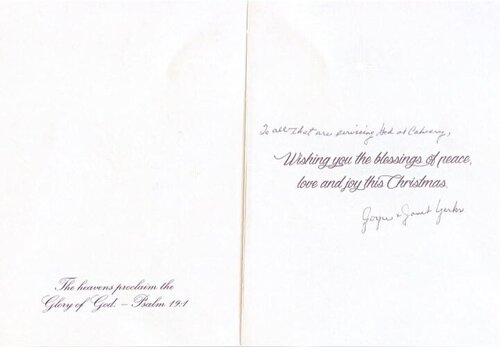 The heavens proclaim the
Glory of God. – Psalm 19:1
To all that are servicing God at Calvary,
Wishing you the blessings of peace,
love and joy this Christmas.
& Janet